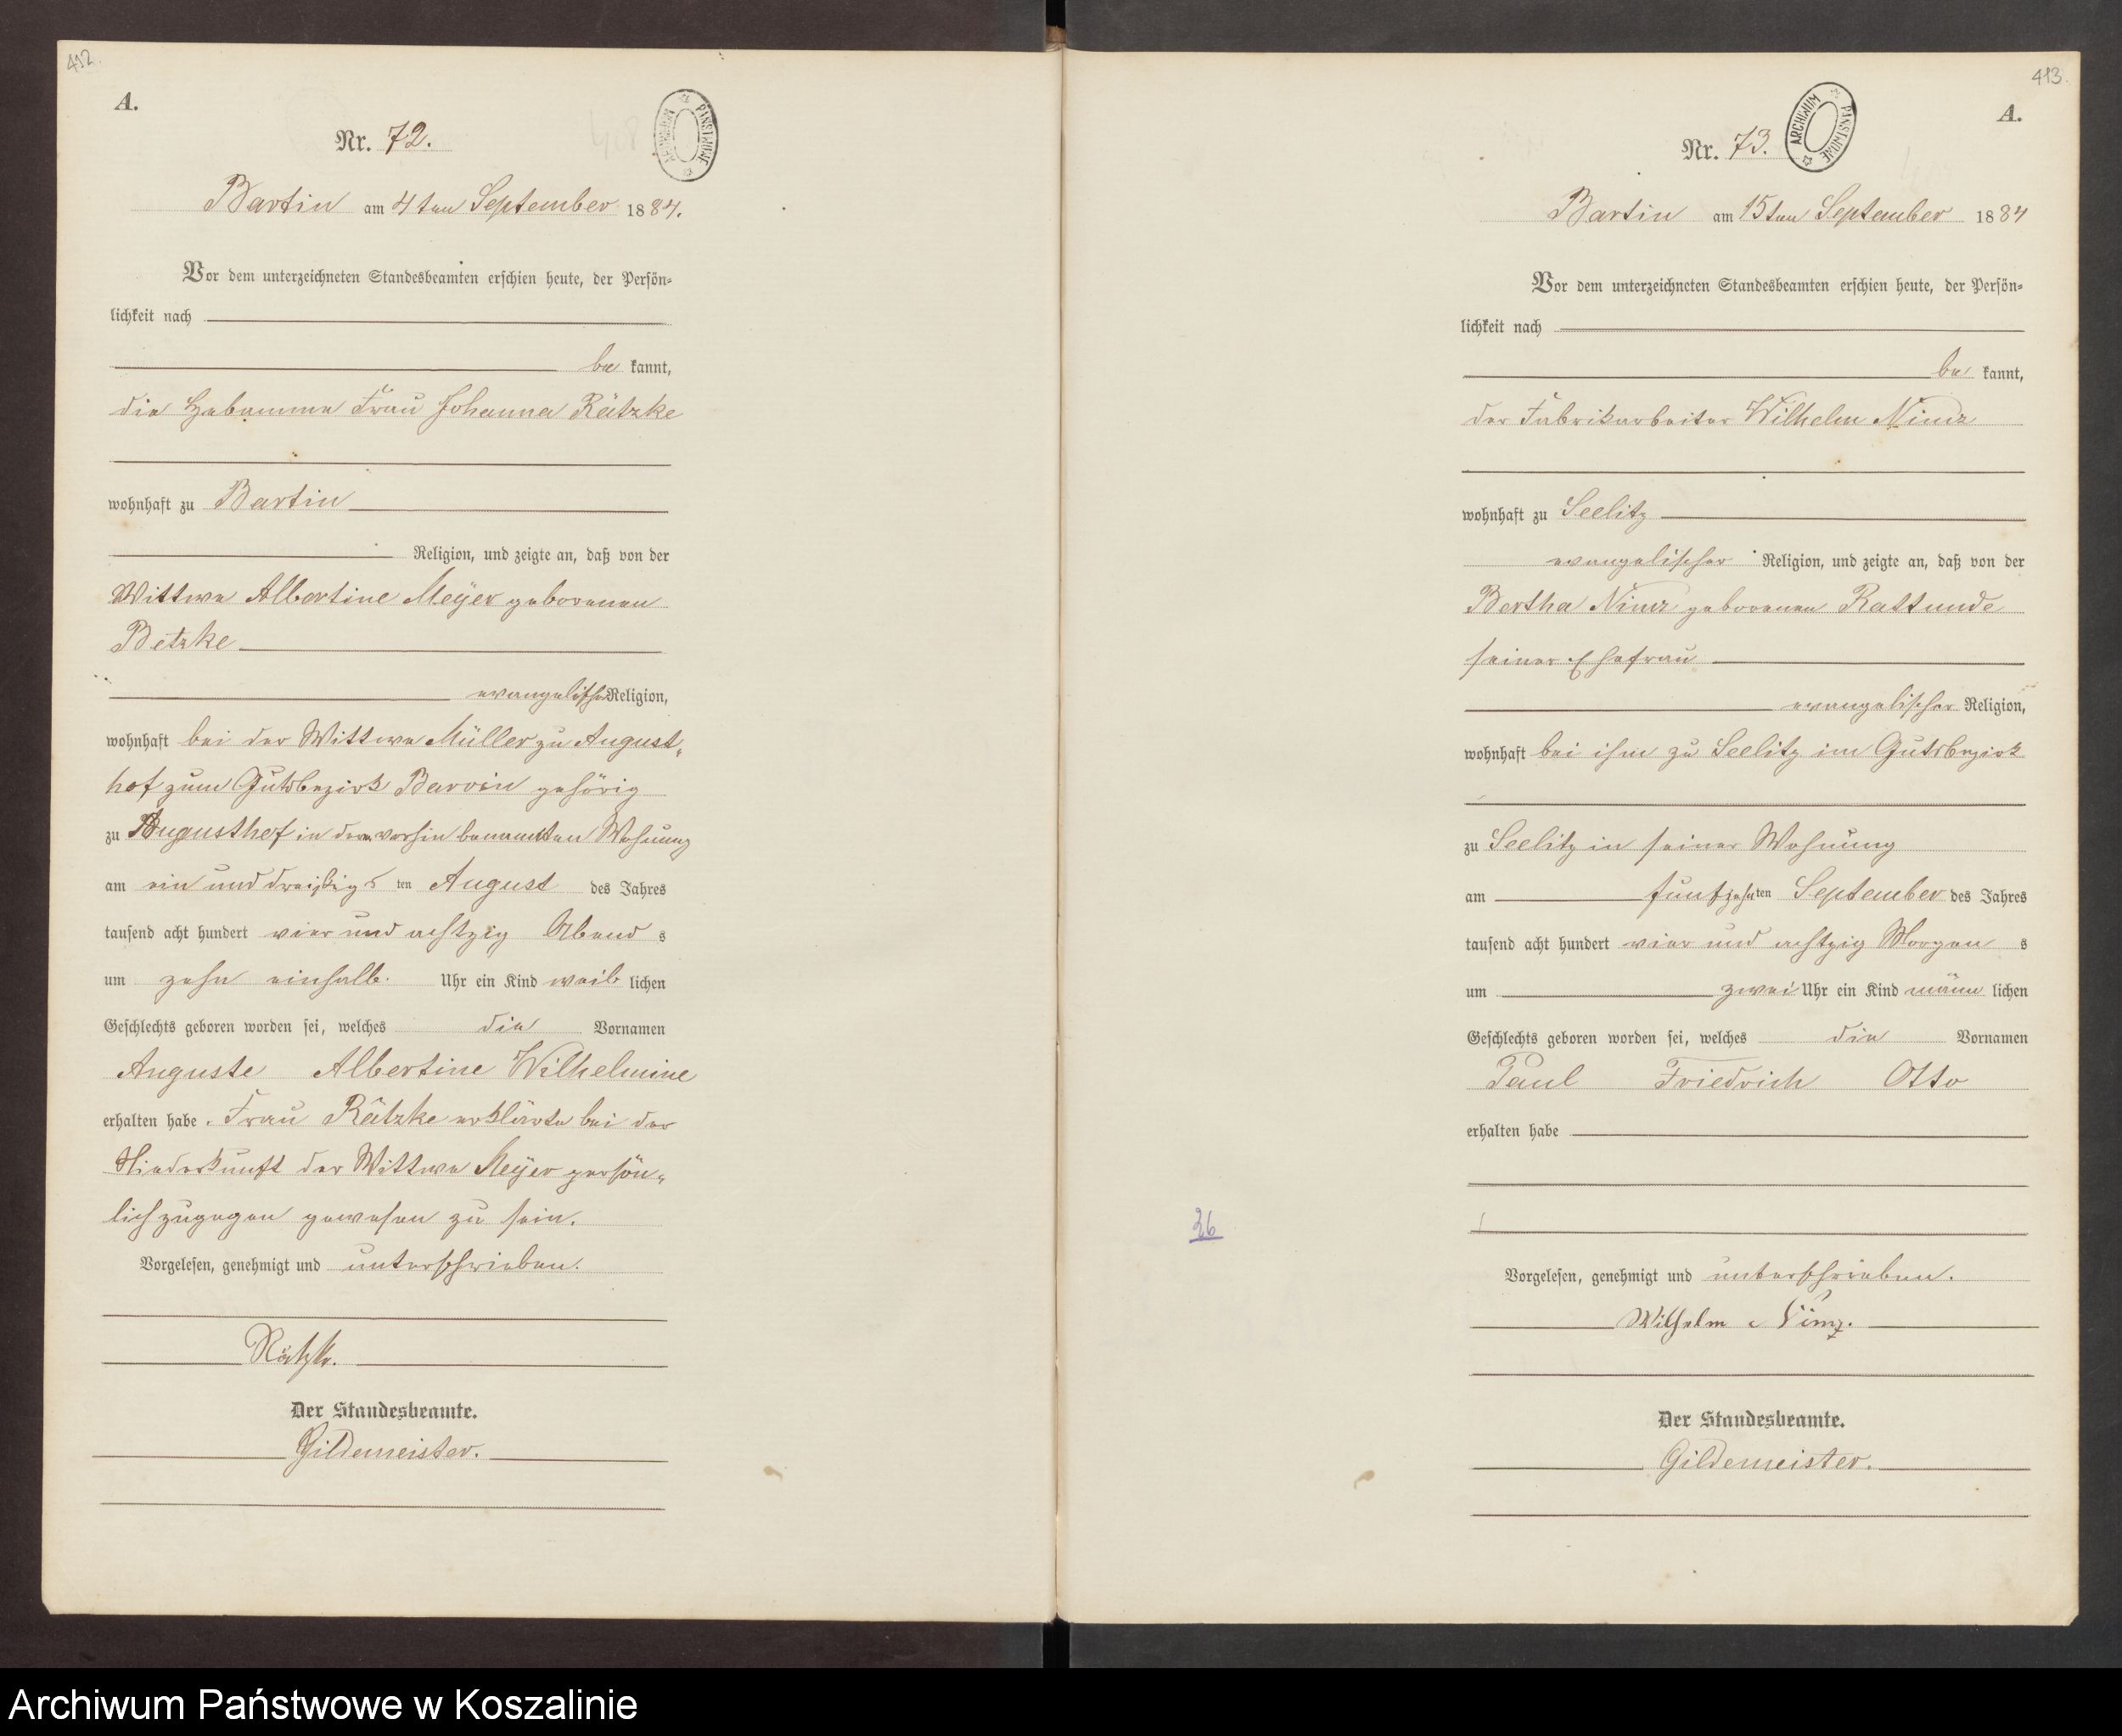 412.
A.
Nr. 72.
ARCHIWUM PAŃSTWOWE
Bartin am 4ten September 1884.
Vor dem unterzeichneten Standesbeamten erschien heute, der Persön-
lichkeit nach
be kannt,
die Hebamme Frau Johanna Rätzke
wohnhaft zu Bartin
Religion, und zeigte an, daß von der
Wittwe Albertine Meÿer geborenen
Betzke
evangelischer Religion,
wohnhaft bei der Wittwe Müller zu August-
hof zum Gutsbezirk Barvin gehörig
zu Augusthof in der vorhin benannten Wohnung
am ein und dreißigs ten August des Jahres
tausend acht hundert vier und achtzig Abend s
um zehn einhalb Uhr ein Kind weib lichen
Geschlechts geboren worden sei, welches die Vornamen
Auguste Albertine Wilhelmine
erhalten habe. Frau Rätzke erklärte bei der
Niederkunft der Wittwe Meÿer persön-
lich zugegen gewesen zu sein.
Vorgelesen, genehmigt und unterschrieben.
Rätzke.
Der Standesbeamte.
Gildemeister.
413.
A.
Nr. 73.
ARCHIWUM PAŃSTWOWE
Bartin am 15ten September 1884
Vor dem unterzeichneten Standesbeamten erschien heute, der Persön-
lichkeit nach
be kannt,
der Fabrikarbeiter Wilhelm Nimz
wohnhaft zu Seelitz
evangelischer Religion, und zeigte an, daß von der
Bertha Nimz geborenen Rattunde
seiner Ehefrau
evangelischer Religion,
wohnhaft bei ihm zu Seelitz im Gutsbezirk
zu Seelitz in seiner Wohnung
am funfzehn ten September des Jahres
tausend acht hundert vier und achtzig Morgen s
um zwei Uhr ein Kind männ lichen
Geschlechts geboren worden sei, welches die Vornamen
Paul Friedrich Otto
erhalten habe
36
Vorgelesen, genehmigt und unterschrieben.
Wilhelm Nimz.
Der Standesbeamte.
Gildemeister.
Archiwum Państwowe w Koszalinie